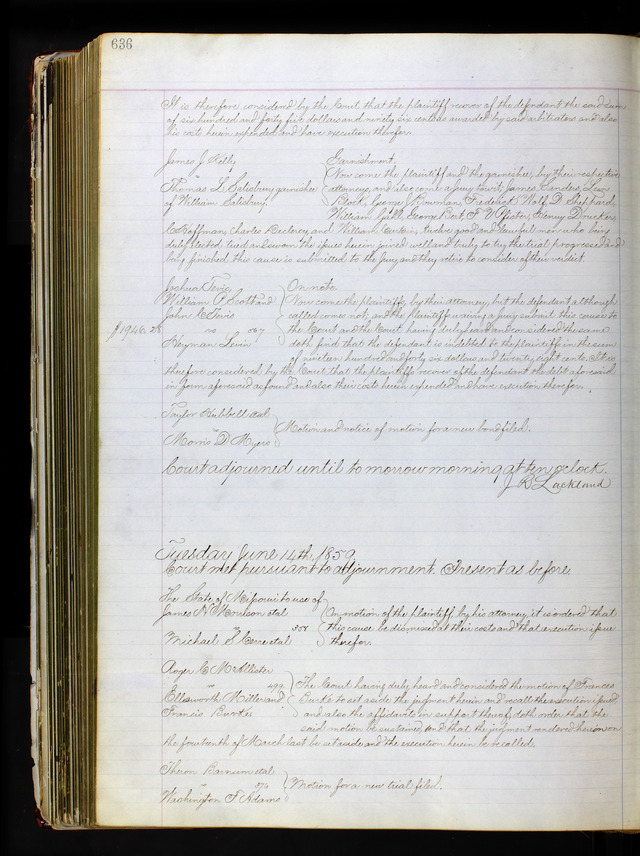 636
It is therefore considered by the Court that the plaintiff recover of the defendant the said sum
of six hundred and forty five dollars and ninety six cents as awarded by said arbitrators and also
his costs herein expended and have execution therefor.
James J. Kelly
Garnishment.
Now come the plaintiff and the garnishee, by their respective
Thomas L Salisbury garnishee
attorneys, and also come a jury towit, James Sanders,
of William Salisbury
Block, George J Bowman, Frederick Wolf, D. Sheppard,
William Gill, George Bert, F W Pfister, Henry
C Hoffman, Charles and William twelve good and lawful men who being
duly elected, tried and sworn the issues herein joined well and truly to try the trial progressed and
being finished this cause is submitted to the Jury and they retire to consider of their verdict.
Joshua Tevis
On note.
William P. Scott and
Now come the plaintiffs, by their attorney, but the defendant although
John C Tevis
called comes not, and the plaintiffs waiving a jury submit this cause to
$1946.28
vs 367
the Court and the Court having duly heard and considered the same
Heyman Levin
doth find that the defendant is indebted to the plaintiff in the sum
of nineteen hundred and forty six dollars and twenty eight cents. It is
therefore considered by the Court that the plaintiffs recover of the defendant the debt aforesaid
in form aforesaid as found and also their costs herein expended and have execution therefor.
Taylor Hubbell et al
Motion and notice of motion for a new bond filed.
Morris D. Myers
Court adjourned until to morrow morning at ten o'clock.
J R Lackland
Tuesday June 14th, 1859
Court met pursuant to adjournment. Present as before.
The State of Missouri to use of
James N. Morrison et al
On motion of the plaintiff by his attorney, it is ordered that
351
this cause be dismissed at their costs and that execution issue
Michael S. Cerre et al
therefor.
Roger C. McAllister
499
The Court having duly heard and considered the motion of Francis
Ellsworth Miller and
Burke to set aside the judgment herein and recall the execution issued
Francis Burke
and also the affidavits in support thereof, doth order that the
said motion be sustained and that the judgment rendered hereon on
the fourteenth of March last be set aside and the execution herein be recalled.
Theron Barnum et al
376
Motion for a new trial filed.
Washington F Adams